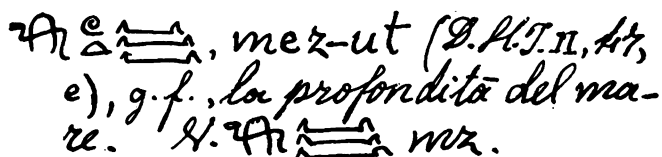 , mez-ut (D.H.T. II, 47,
e), g. f., la profondità del ma-
re. V. mz.